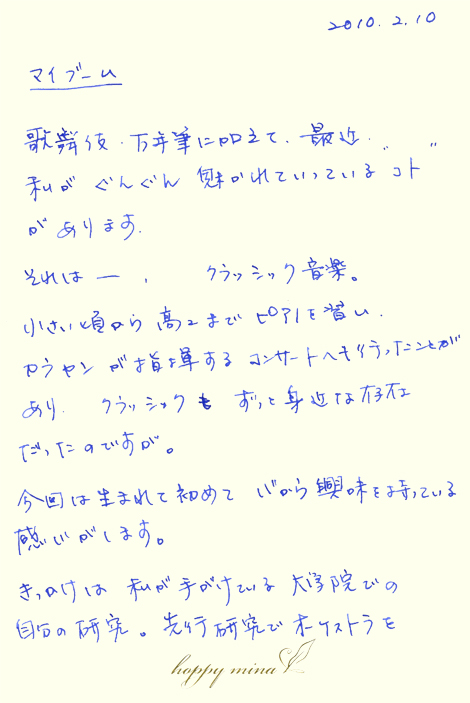 2010.2.10
マイブーム
歌舞伎・万年筆に加えて、最近、
私が ぐんぐん 魅かれていっている "コト"
があります.
それは ー 、 クラッシック音楽。
小さい頃から 高2まで ピアノを習い、
カラヤンが指揮する コンサートへも行ったことが
あり. クラッシックも ずっと身近な存在
だったのですが。
今回は生まれて初めて 心から興味を持っている
感じがします。
きっかけは 私が手がけている 大学院での
自分の研究。先行研究でオーケストラを
happy mina